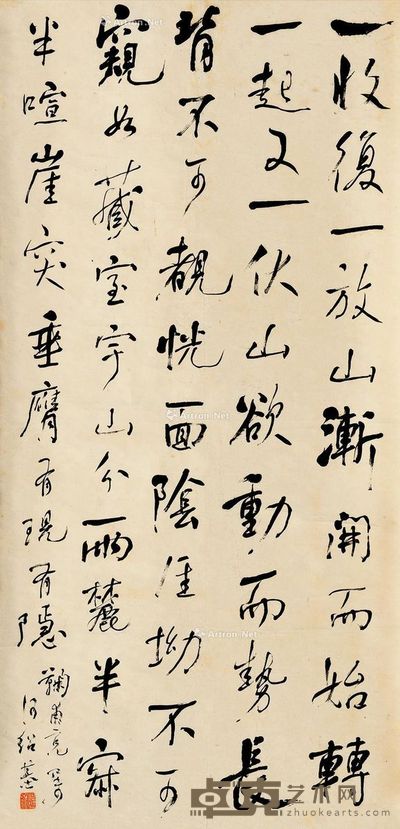 一收復一放山漸開而始轉
一起又一伏山欲動而勢長
背不可覩恍面陰厓坳不可
窺如藏室宇山分兩麓半寂
半喧崖突垂膺有現有隱
鞠甫
何紹基
卓克艺术网
zhuokearts.com
Artron.Net